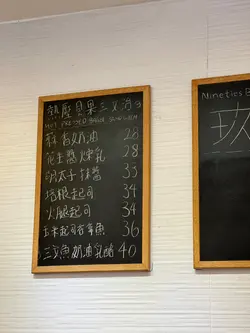 熱壓堅果三文治
HOT PRESSED
蒜香奶油 28
花生醬煉乳 28
明太子抹醬 33
培根起司 34
火腿起司 34
玉米起司 36
三文魚奶油乳酪 40
Minetics B
玖